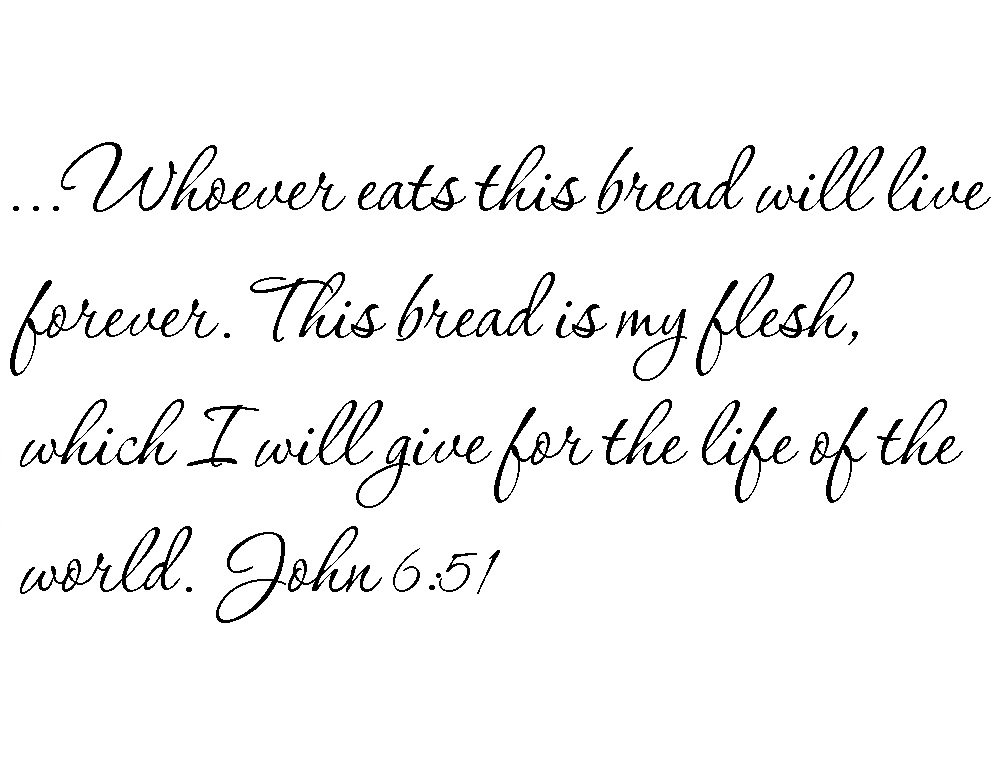 ...Whoever eats this bread will live
forever. This bread is my flesh,
which I will give for the life of the
world. John 6:51